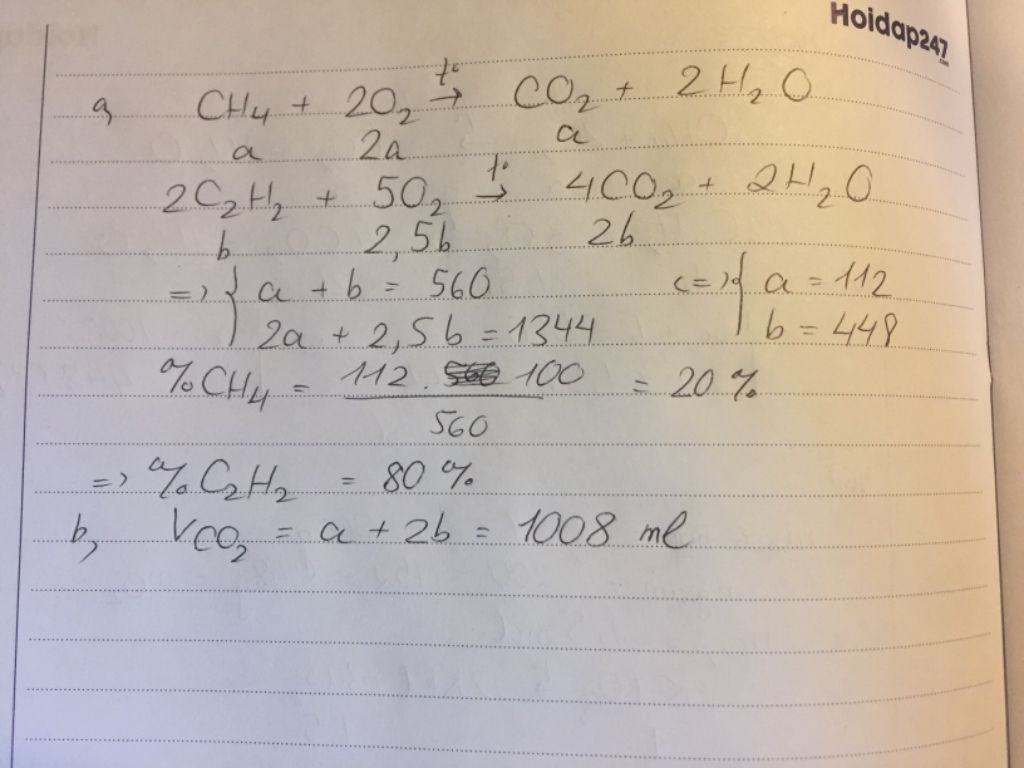 Hoidap247
.com
a, CH₄ + 2O₂ →(t°) CO₂ + 2H₂O
a 2a a
2C₂H₂ + 5O₂ →(t°) 4CO₂ + 2H₂O
b 2,5b 2b
=> { a + b = 560 <=> { a = 112
2a + 2,5b = 1344 b = 448
%CH₄ = 112 . 100 = 20 %
560
=> %C₂H₂ = 80 %
b, VCO₂ = a + 2b = 1008 ml